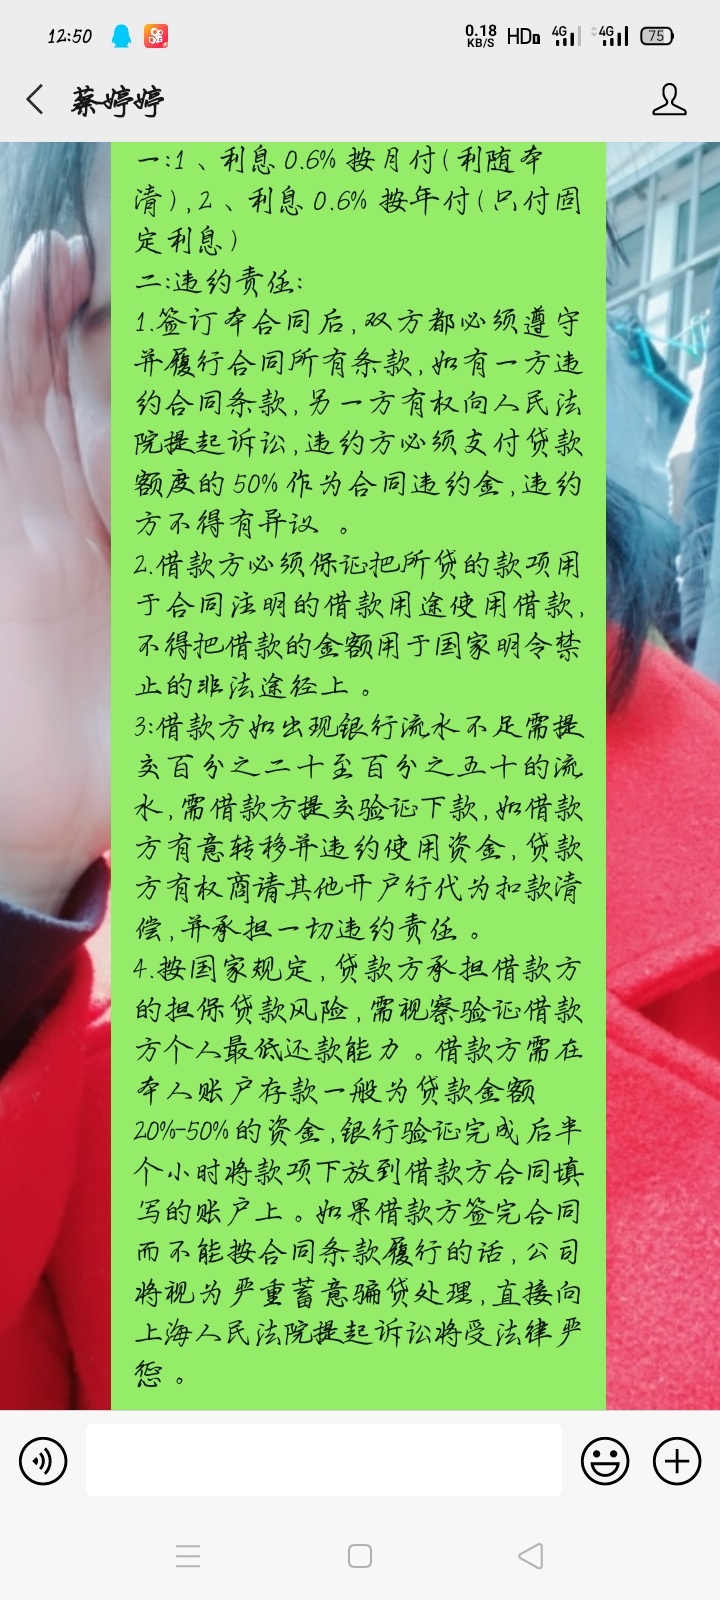 12:50
0.18
KB/S
HD
4G
4G
75
蔡婷婷
一:1、利息0.6%按月付(利随本
清),2、利息0.6%按年付(只付固
定利息)
二:违约责任:
1.签订本合同后,双方都必须遵守
并履行合同所有条款,如有一方违
约合同条款,另一方有权向人民法
院提起诉讼,违约方必须支付贷款
额度的50%作为合同违约金,违约
方不得有异议 。
2.借款方必须保证把所贷的款项用
于合同注明的借款用途使用借款,
不得把借款的金额用于国家明令禁
止的非法途径上 。
3:借款方如出现银行流水不足需提
交百分之二十至百分之五十的流
水,需借款方提交验证下款,如借款
方有意转移并违约使用资金,贷款
方有权商请其他开户行代为扣款清
偿,并承担一切违约责任 。
4.按国家规定,贷款方承担借款方
的担保贷款风险,需视察验证借款
方个人最低还款能力 。借款方需在
本人账户存款一般为贷款金额
20%-50%的资金,银行验证完成后半
个小时将款项下放到借款方合同填
写的账户上 。如果借款方签完合同
而不能按合同条款履行的话,公司
将视为严重蓄意骗贷处理,直接向
上海人民法院提起诉讼将受法律严
惩 。